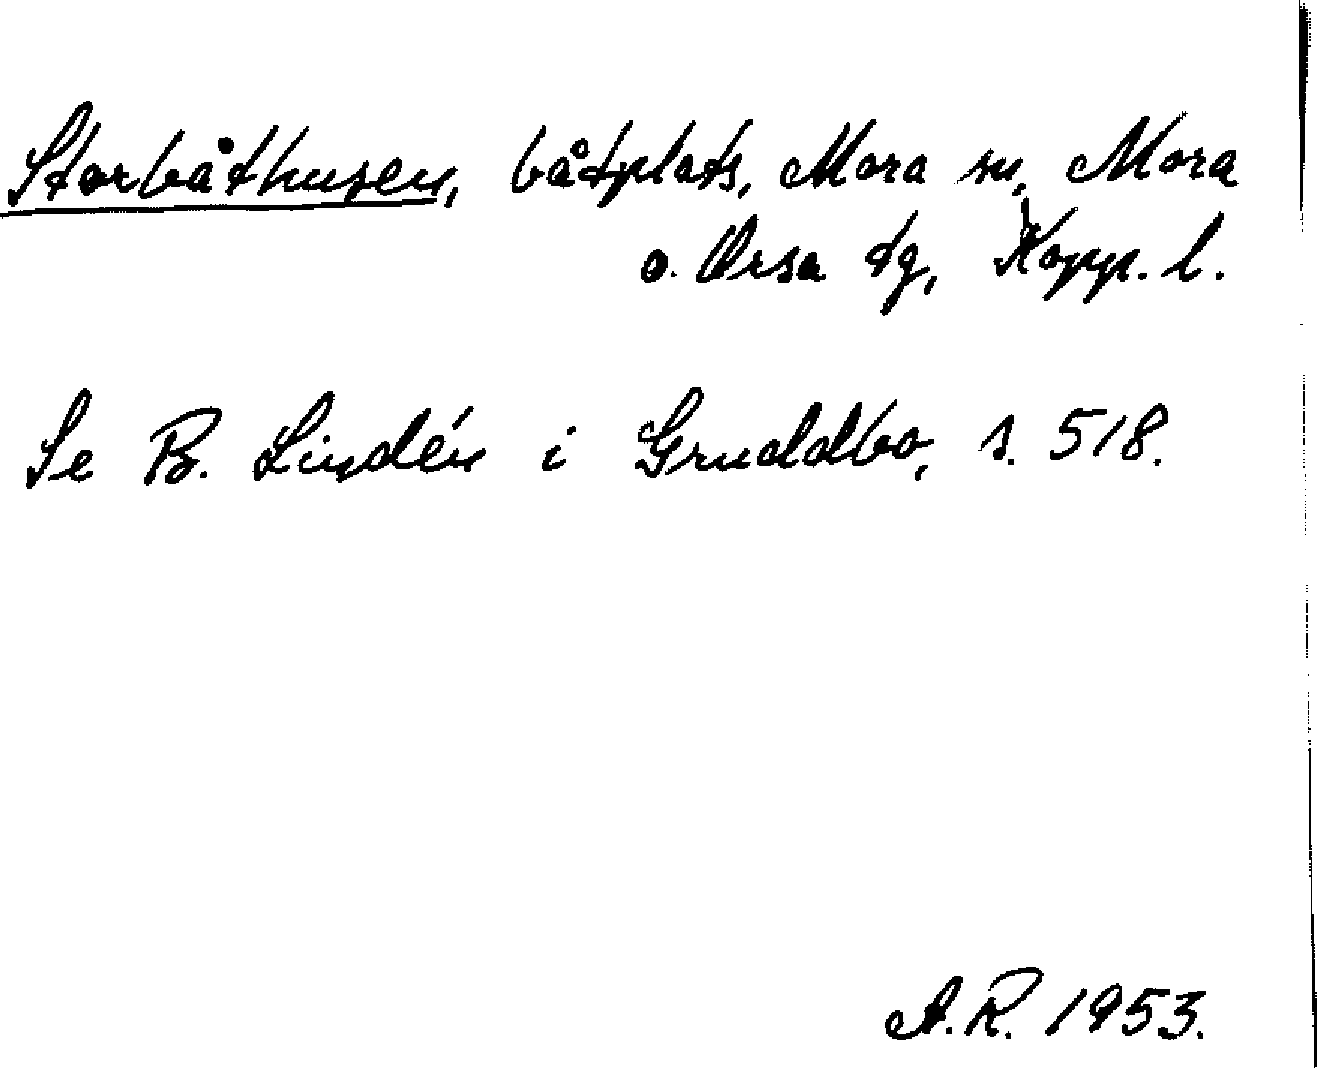 Storbåthusen, båtplats, Mora sn, Mora
o. Orsa tg, Kopp. l.
Se B. Lindén i Gruddbo, s. 518.
A.R. 1953.